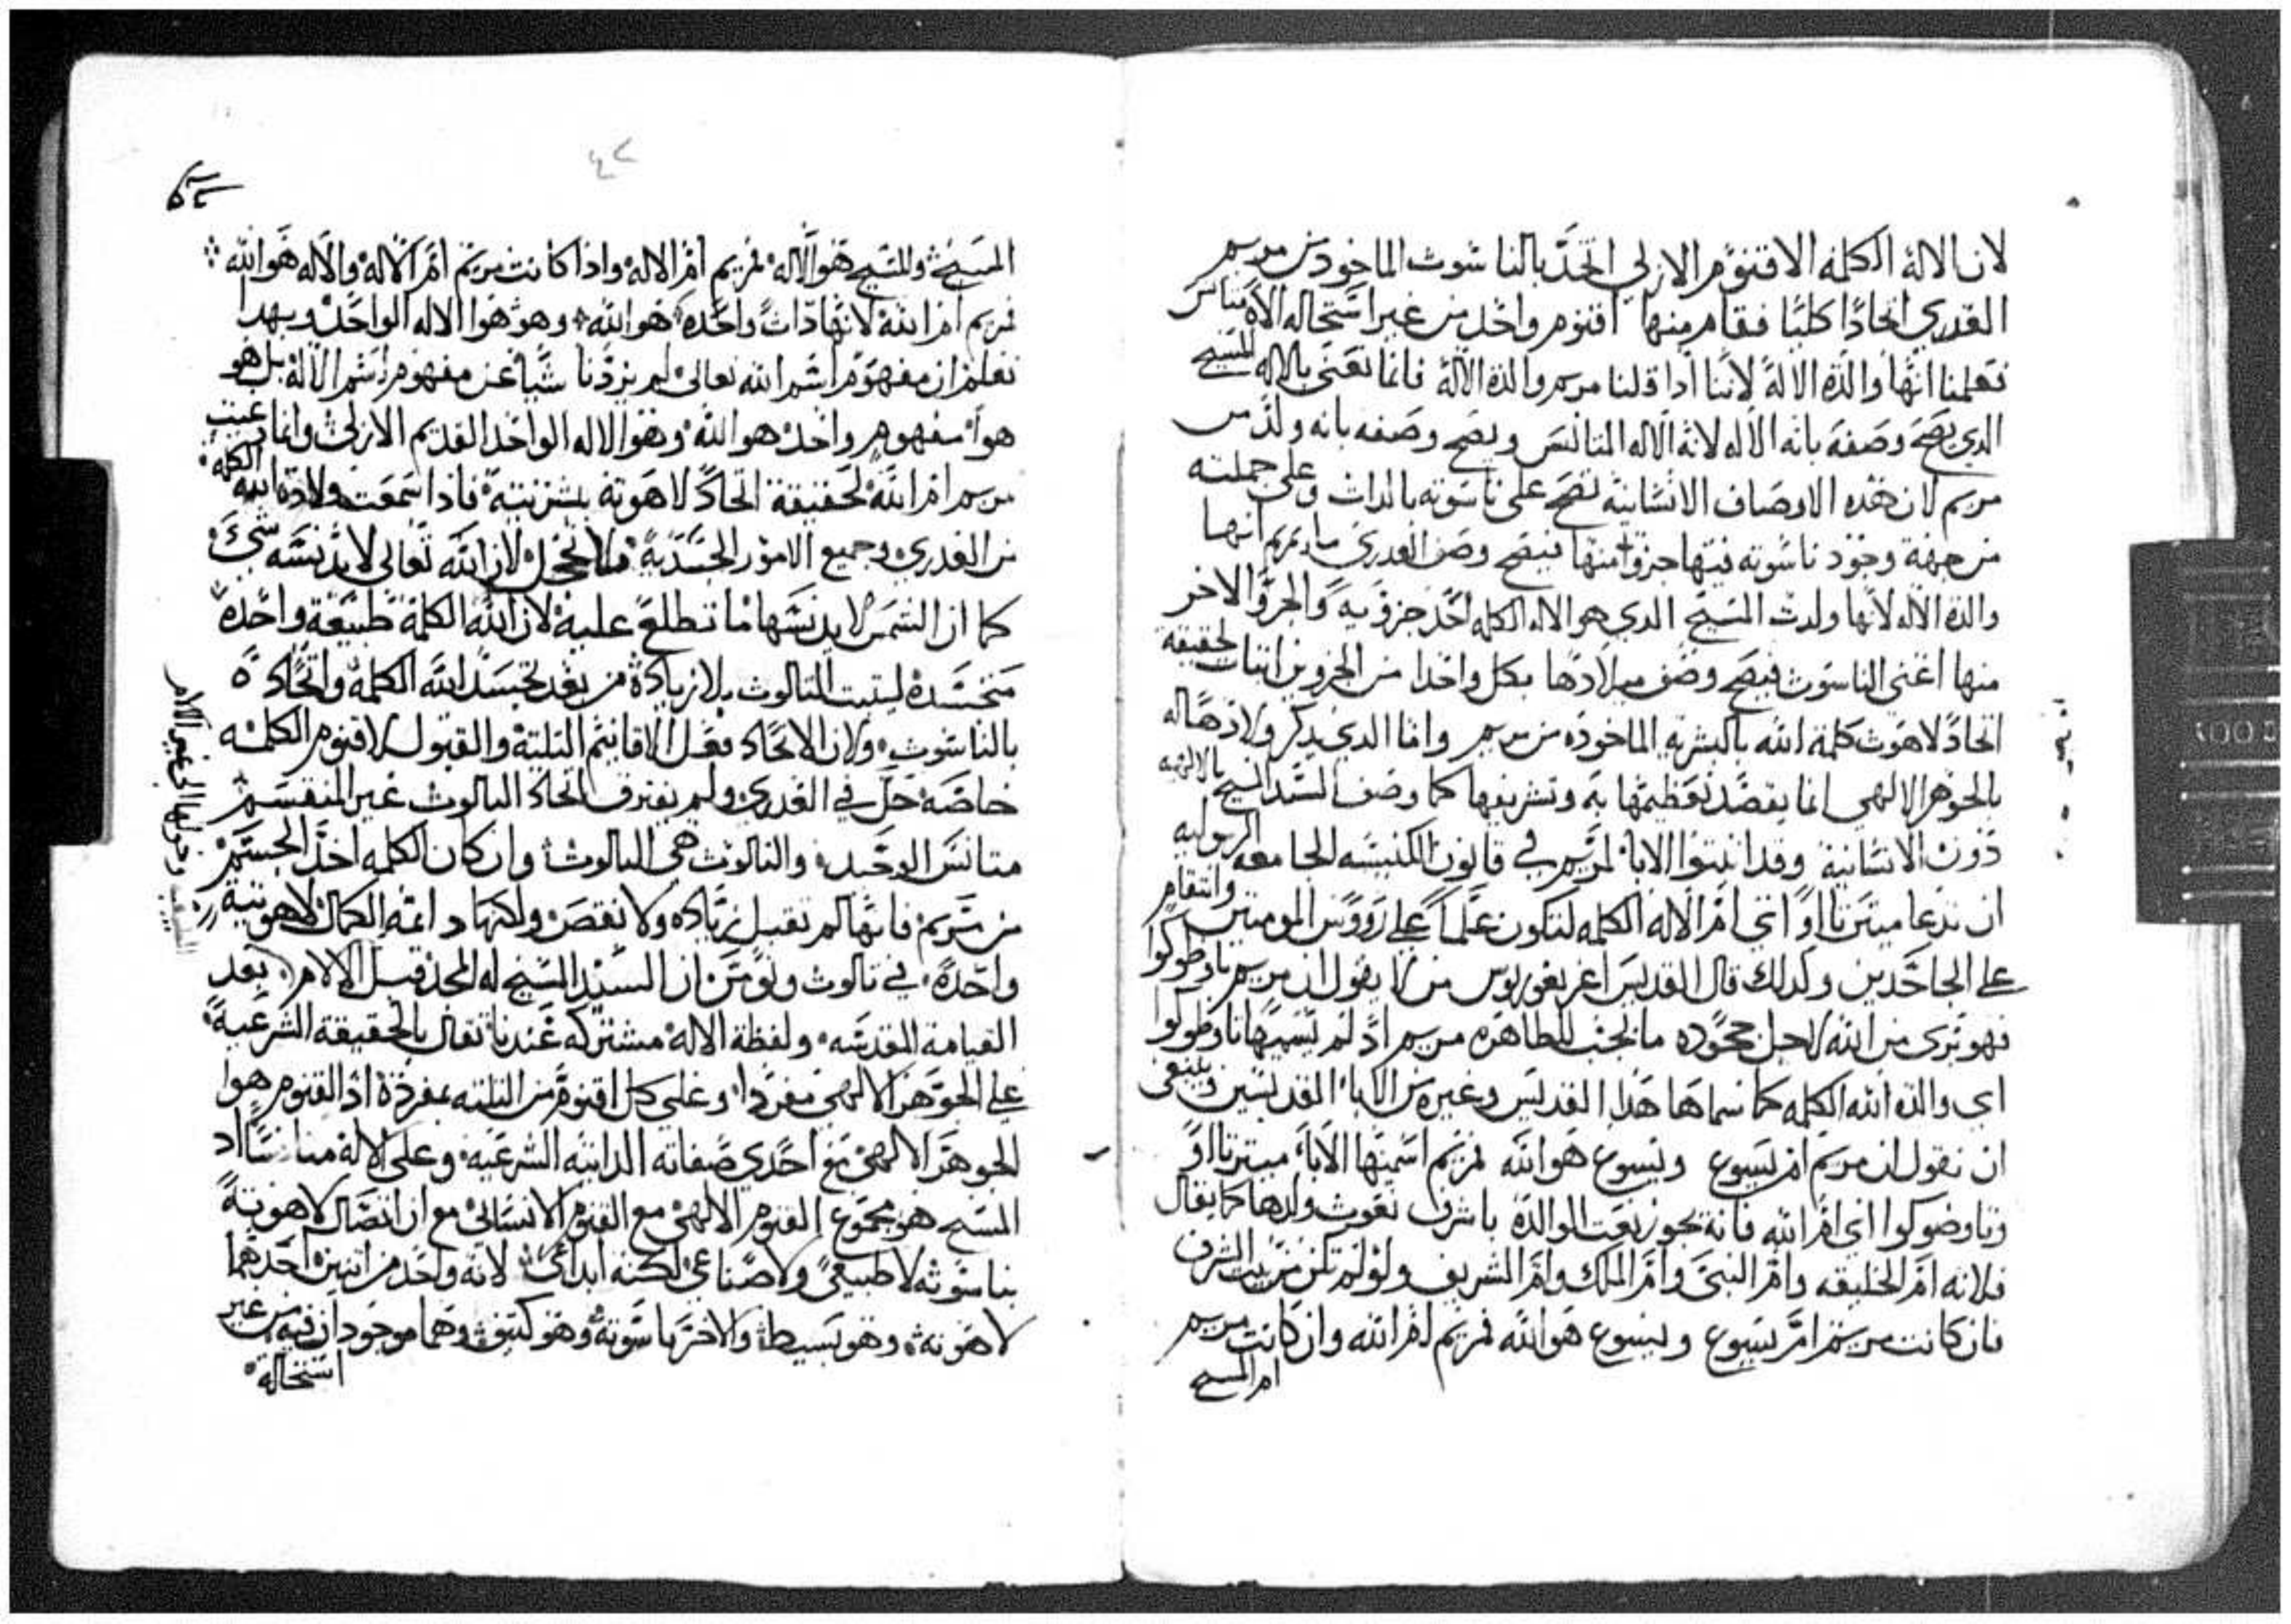 لان الاله الكلمه الاقنوم الازلي اتحد بالناسوت الماخود من مريم
العدرى اتحادًا كليًا فقام منها اقنوم واحد من غير استحاله الاه متانس
فعلمنا انها والدة الاله لاننا ادا قلنا مريم والدة الاله فانما نعني بالاله المسيح
الدي يصح وصفه بانه الاله لانه الاله المتانس ويصح وصفه بانه ولد من
مريم لان هده الاوصاف الانسانيه تصح على ناسوته بالدات وعلى جملته
من جهة وجود ناسوته فيها جزوا منها فيصح وصف العدرى مارتمريم انها
والدة الاله لانها ولدت المسيح الدي هو الاله الكلمه احد جزويه والجزو الاخر
منها اعني الناسوت فيصح وصف ميلادها بكل واحدا من الجزوين اتبات لحقيقة
اتحاد لاهوت كلمة الله بالبشريه الماخوده من مريم واما الدي يدكر ولادها له
بالجوهر الالهي انما يقصد تعظيمها به وتشريفها كما وصف السيد المسيح بالالهيه
دون الانسانية وقد اتبتوا الابا لمريم في قانون الكنيسه الجامعه الرسوليه
ان تدعا ميترنااو اي ام الاله الكلمه لتكون علمًا على رووس المومنين وانتقام
على الجاحدين وكدلك قال القديس اغريغوريوس من لا يقول ان مريم تاوضوكوا
فهو بري من الله لاجل جحوده ما يجب للطاهره مريم اد لم يسميها تاوضوكوا
اي والدة الله الكلمه كما سماها هدا القديس وغيره من الابا القديسين وينبغي
ان نقول ان مريم ام يسوع ويسوع هو الله فمريم اسمتها الابا ميترنااو
وتاوضوكوا اي ام الله فانه يجوز نعت الوالدة باشرف نعوت ولدها كما يقال
فلانه ام الخليفه وام النبي وام الملك وام الشريف ولو لم تكن من بيت الشرف
فان كانت مريم ام يسوع ويسوع هو الله فمريم ام الله وان كانت مريم
ام المسيح
٤٢
المسيح والمسيح هو الاله فمريم ام الاله وادا كانت مريم ام الاله والاله هو الله
فمريم ام الله لانها دات واحده هو الله وهو هوا الاله الواحد وبهدا
نعلم ان مفهوم اسم الله تعالى لم يزدنا شيا عن مفهوم اسم الاله بل هو
هوا مفهوم واحد هو الله وهو الاله الواحد القديم الازلي وانما دعيت
مريم ام الله لحقيقة اتحاد لاهوته بشريته فادا سمعت ولادة الله الكلمه
من العدرى وجميع الامور الجسديه فلا تخجل لان الله تعالى لا يدنسه شي
كما ان الشمس لا يدنسها ما تطلع عليه لان الله الكلمة طبيعة واحدة
متجسده ليتبت التالوت بلا زيادة من بعد تجسد الله الكلمة واتحاده
بالناسوت ولان الاتحاد فعل الاقانيم التلتة والقبول لاقنوم الكلمه
خاصه حل في العدرى ولم يفترق اتحاد التالوت غير المنقسم
متانس الوحيد والتالوت هي التالوت وان كان الكلمه اخد الجسم
من مريم فانها لم تقبل زياده ولا نقص ولكنها دايمه الكمال لاهوتية
واحدة في تالوت ونومن ان السيد المسيح له المجد قبل الالام بعد
القيامة المقدسه ولفظة الاله مشتركه عندنا تقال بالحقيقة الشرعية
على الجوهر الالهي مفردا وعلى كل اقنوم من التلته بمفرده اد القنوم هوا
الجوهر الالهي مع احدي صفاته الداتيه الشرعيه وعلى الاله متانسًا اد
المسيح هو مجموع القنوم الالهي مع القنوم الانساني مع ان اتصال لاهوته
بناسوته لا طبيعي ولا صناعي لكنه ابداعي لانه واحد من اتنين احدهما
لاهوته وهو بسيط والاخر ناسوته وهو كتيف وهما موجودان فيه من غير
استحالة